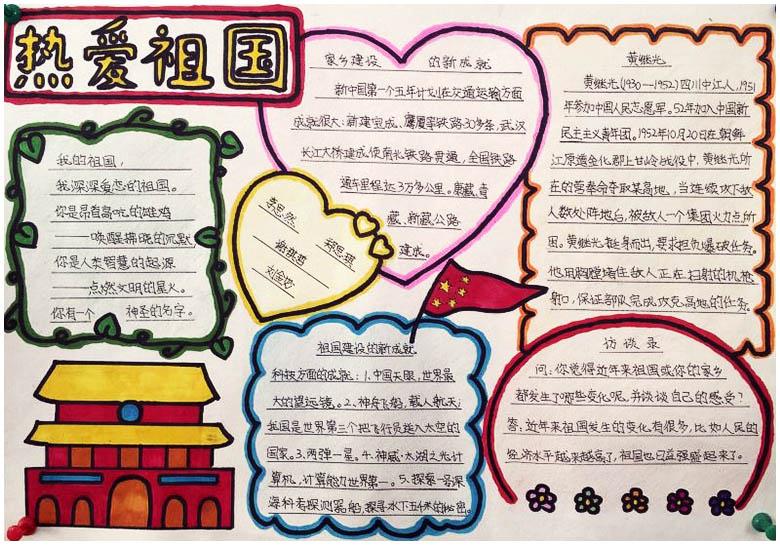 热爱祖国
我的祖国，
我深深爱恋的祖国。
你是昂首高吭的雄鸡
——唤醒拂晓的沉默
你是人类智慧的起源
——点燃文明的星火。
你有一个 神圣的名字。
家乡建设 的新成就
新中国第一个五年计划在交通运输方面
成就很大：新建宝成、鹰厦等铁路30多条，武汉
长江大桥建成使南北铁路贯通，全国铁路
通车里程达3万多公里。康藏、青
藏、新藏公路
建成。
李思然
祖国建设的新成就
科技方面的成就：1、中国天眼，世界最
大的望远镜。2、神舟飞船，载人航天，
我国是世界第三个把飞行员送入太空的
国家。3、两弹一星。4、神威·太湖之光计
算机，计算能力世界第一。5、探索一号深
海科考探测器船，探寻水下五千米的秘密。
黄继光
黄继光(1930—1952)四川中江人，1951
年参加中国人民志愿军。52年加入中国新
民主主义青年团。1952年10月20日在朝鲜
江原道金化郡上甘岭战役中，黄继光所
在的营奉命夺取某高地，当连续攻下敌
人数处阵地后，被敌人一个集团火力点所
困。黄继光挺身而出，要求担负爆破任务。
他用胸膛堵住敌人正在扫射的机枪
射口，保证部队完成攻克高地的任务。
访谈录
问：你觉得近年来祖国或你的家乡
都发生了哪些变化呢，并谈谈自己的感受？
答：近年来祖国发生的变化有很多，比如人民的
经济水平越来越高了，祖国也日益强盛起来了。